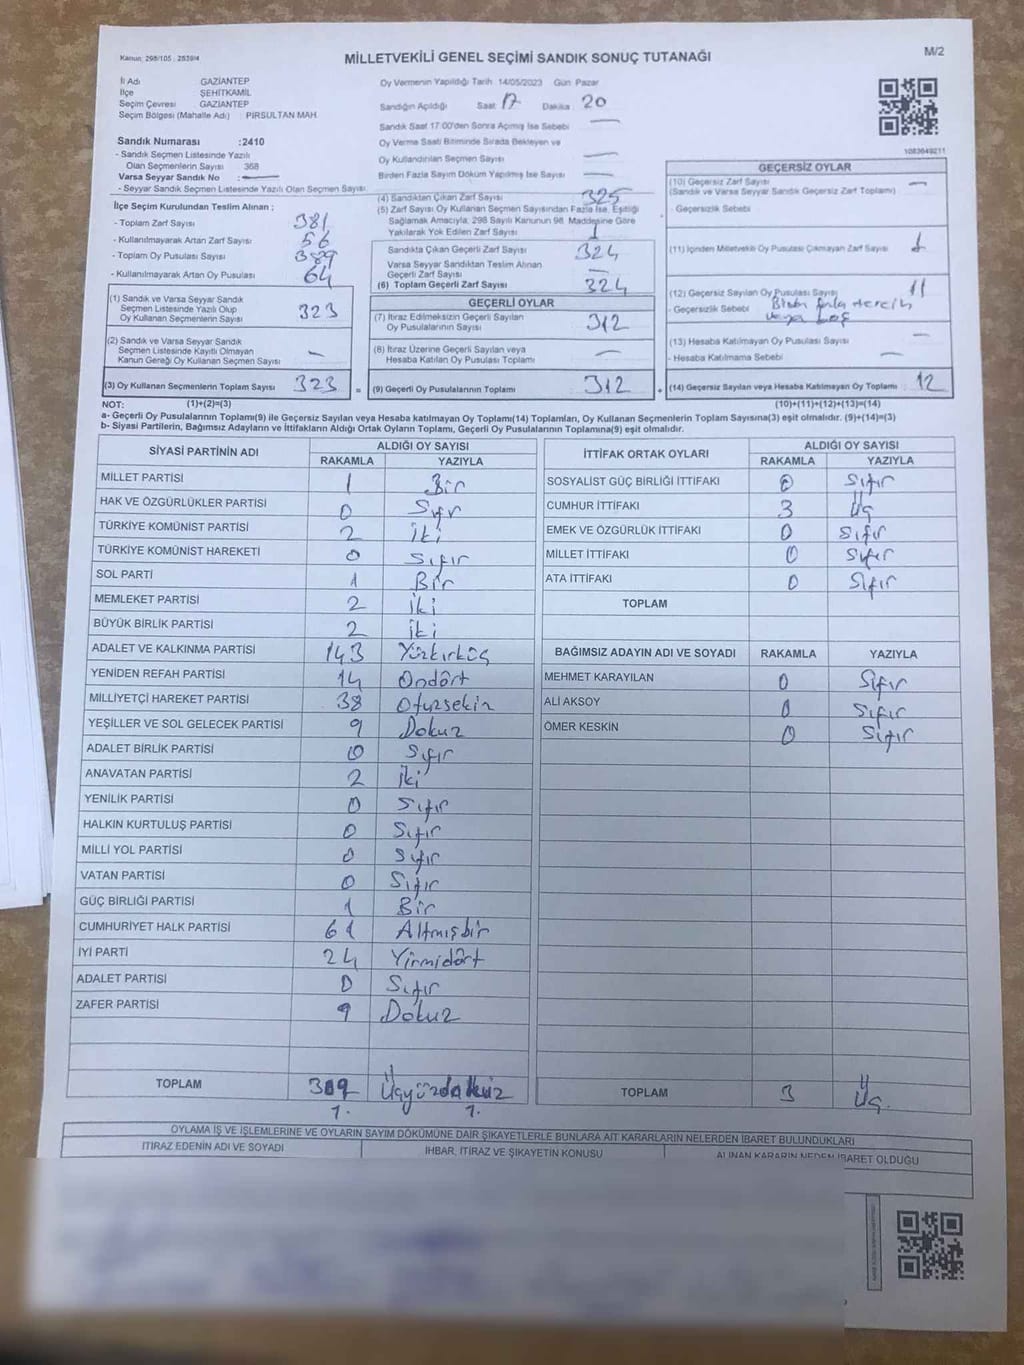 Kanun: 298/105 , 2839/4
MİLLETVEKİLİ GENEL SEÇİMİ SANDIK SONUÇ TUTANAĞI
M/2
İl Adı GAZİANTEP
İlçe ŞEHİTKAMİL
Seçim Çevresi GAZİANTEP
Seçim Bölgesi (Mahalle Adı) PIRSULTAN MAH.
Oy Vermenin Yapıldığı Tarih 14/05/2023 Gün Pazar
Sandığın Açıldığı Saat 17 Dakika 20
Sandık Saat 17:00'den Sonra Açılmış İse Sebebi —
Oy Verme Saati Bitiminde Sırada Bekleyen ve
Oy Kullandırılan Seçmen Sayısı —
Birden Fazla Sayım Döküm Yapılmış İse Sayısı —
1083649211
Sandık Numarası :2410
- Sandık Seçmen Listesinde Yazılı
Olan Seçmenlerin Sayısı 368
Varsa Seyyar Sandık No : —
- Seyyar Sandık Seçmen Listesinde Yazılı Olan Seçmen Sayısı
İlçe Seçim Kurulundan Teslim Alınan ;
- Toplam Zarf Sayısı 381
- Kullanılmayarak Artan Zarf Sayısı 56
- Toplam Oy Pusulası Sayısı 389
- Kullanılmayarak Artan Oy Pusulası 64
(1) Sandık ve Varsa Seyyar Sandık
Seçmen Listesinde Yazılı Olup
Oy Kullanan Seçmenlerin Sayısı 323
(2) Sandık ve Varsa Seyyar Sandık
Seçmen Listesinde Kayıtlı Olmayan
Kanun Gereği Oy Kullanan Seçmen Sayısı —
(3) Oy Kullanan Seçmenlerin Toplam Sayısı 323 =
(4) Sandıktan Çıkan Zarf Sayısı 325
(5) Zarf Sayısı Oy Kullanan Seçmen Sayısından Fazla İse, Eşitliği
Sağlamak Amacıyla, 298 Sayılı Kanunun 98. Maddesine Göre
Yakılarak Yok Edilen Zarf Sayısı 1
Sandıkta Çıkan Geçerli Zarf Sayısı 324
Varsa Seyyar Sandıktan Teslim Alınan
Geçerli Zarf Sayısı —
(6) Toplam Geçerli Zarf Sayısı 324
GEÇERLİ OYLAR
(7) İtiraz Edilmeksizin Geçerli Sayılan
Oy Pusulalarının Sayısı 312
(8) İtiraz Üzerine Geçerli Sayılan veya
Hesaba Katılan Oy Pusulası Toplamı —
(9) Geçerli Oy Pusulalarının Toplamı 312 +
GEÇERSİZ OYLAR
(10) Geçersiz Zarf Sayısı —
(Sandık ve Varsa Seyyar Sandık Geçersiz Zarf Toplamı)
- Geçersizlik Sebebi
(11) İçinden Milletvekili Oy Pusulası Çıkmayan Zarf Sayısı 1
(12) Geçersiz Sayılan Oy Pusulası Sayısı 11
- Geçersizlik Sebebi Birden fazla tercih
veya boş
(13) Hesaba Katılmayan Oy Pusulası Sayısı —
- Hesaba Katılmama Sebebi —
(14) Geçersiz Sayılan veya Hesaba Katılmayan Oy Toplamı 12
NOT: (1)+(2)=(3) (10)+(11)+(12)+(13)=(14)
a- Geçerli Oy Pusulalarının Toplamı(9) ile Geçersiz Sayılan veya Hesaba katılmayan Oy Toplamı(14) Toplamları, Oy Kullanan Seçmenlerin Toplam Sayısına(3) eşit olmalıdır. (9)+(14)=(3)
b- Siyasi Partilerin, Bağımsız Adayların ve İttifakların Aldığı Ortak Oyların Toplamı, Geçerli Oy Pusulalarının Toplamına(9) eşit olmalıdır.
SİYASİ PARTİNİN ADI ALDIĞI OY SAYISI
RAKAMLA YAZIYLA
MİLLET PARTİSİ 1 Bir
HAK VE ÖZGÜRLÜKLER PARTİSİ 0 Sıfır
TÜRKİYE KOMÜNİST PARTİSİ 2 İki
TÜRKİYE KOMÜNİST HAREKETİ 0 Sıfır
SOL PARTİ 1 Bir
MEMLEKET PARTİSİ 2 İki
BÜYÜK BİRLİK PARTİSİ 2 İki
ADALET VE KALKINMA PARTİSİ 143 Yüzkırküç
YENİDEN REFAH PARTİSİ 14 Ondört
MİLLİYETÇİ HAREKET PARTİSİ 38 Otuzsekiz
YEŞİLLER VE SOL GELECEK PARTİSİ 9 Dokuz
ADALET BİRLİK PARTİSİ 0 Sıfır
ANAVATAN PARTİSİ 2 İki
YENİLİK PARTİSİ 0 Sıfır
HALKIN KURTULUŞ PARTİSİ 0 Sıfır
MİLLİ YOL PARTİSİ 0 Sıfır
VATAN PARTİSİ 0 Sıfır
GÜÇ BİRLİĞİ PARTİSİ 1 Bir
CUMHURİYET HALK PARTİSİ 61 Altmışbir
İYİ PARTİ 24 Yirmidört
ADALET PARTİSİ 0 Sıfır
ZAFER PARTİSİ 9 Dokuz
TOPLAM 309 Üçyüzdokuz
İTTİFAK ORTAK OYLARI ALDIĞI OY SAYISI
RAKAMLA YAZIYLA
SOSYALİST GÜÇ BİRLİĞİ İTTİFAKI 0 Sıfır
CUMHUR İTTİFAKI 3 Üç
EMEK VE ÖZGÜRLÜK İTTİFAKI 0 Sıfır
MİLLET İTTİFAKI 0 Sıfır
ATA İTTİFAKI 0 Sıfır
TOPLAM
BAĞIMSIZ ADAYIN ADI VE SOYADI RAKAMLA YAZIYLA
MEHMET KARAYILAN 0 Sıfır
ALİ AKSOY 0 Sıfır
ÖMER KESKİN 0 Sıfır
TOPLAM 3 Üç.
OYLAMA İŞ VE İŞLEMLERİNE VE OYLARIN SAYIM DÖKÜMÜNE DAİR ŞİKAYETLERLE BUNLARA AİT KARARLARIN NELERDEN İBARET BULUNDUKLARI
İTİRAZ EDENİN ADI VE SOYADI İHBAR, İTİRAZ VE ŞİKAYETİN KONUSU ALINAN KARARIN NEDEN İBARET OLDUĞU